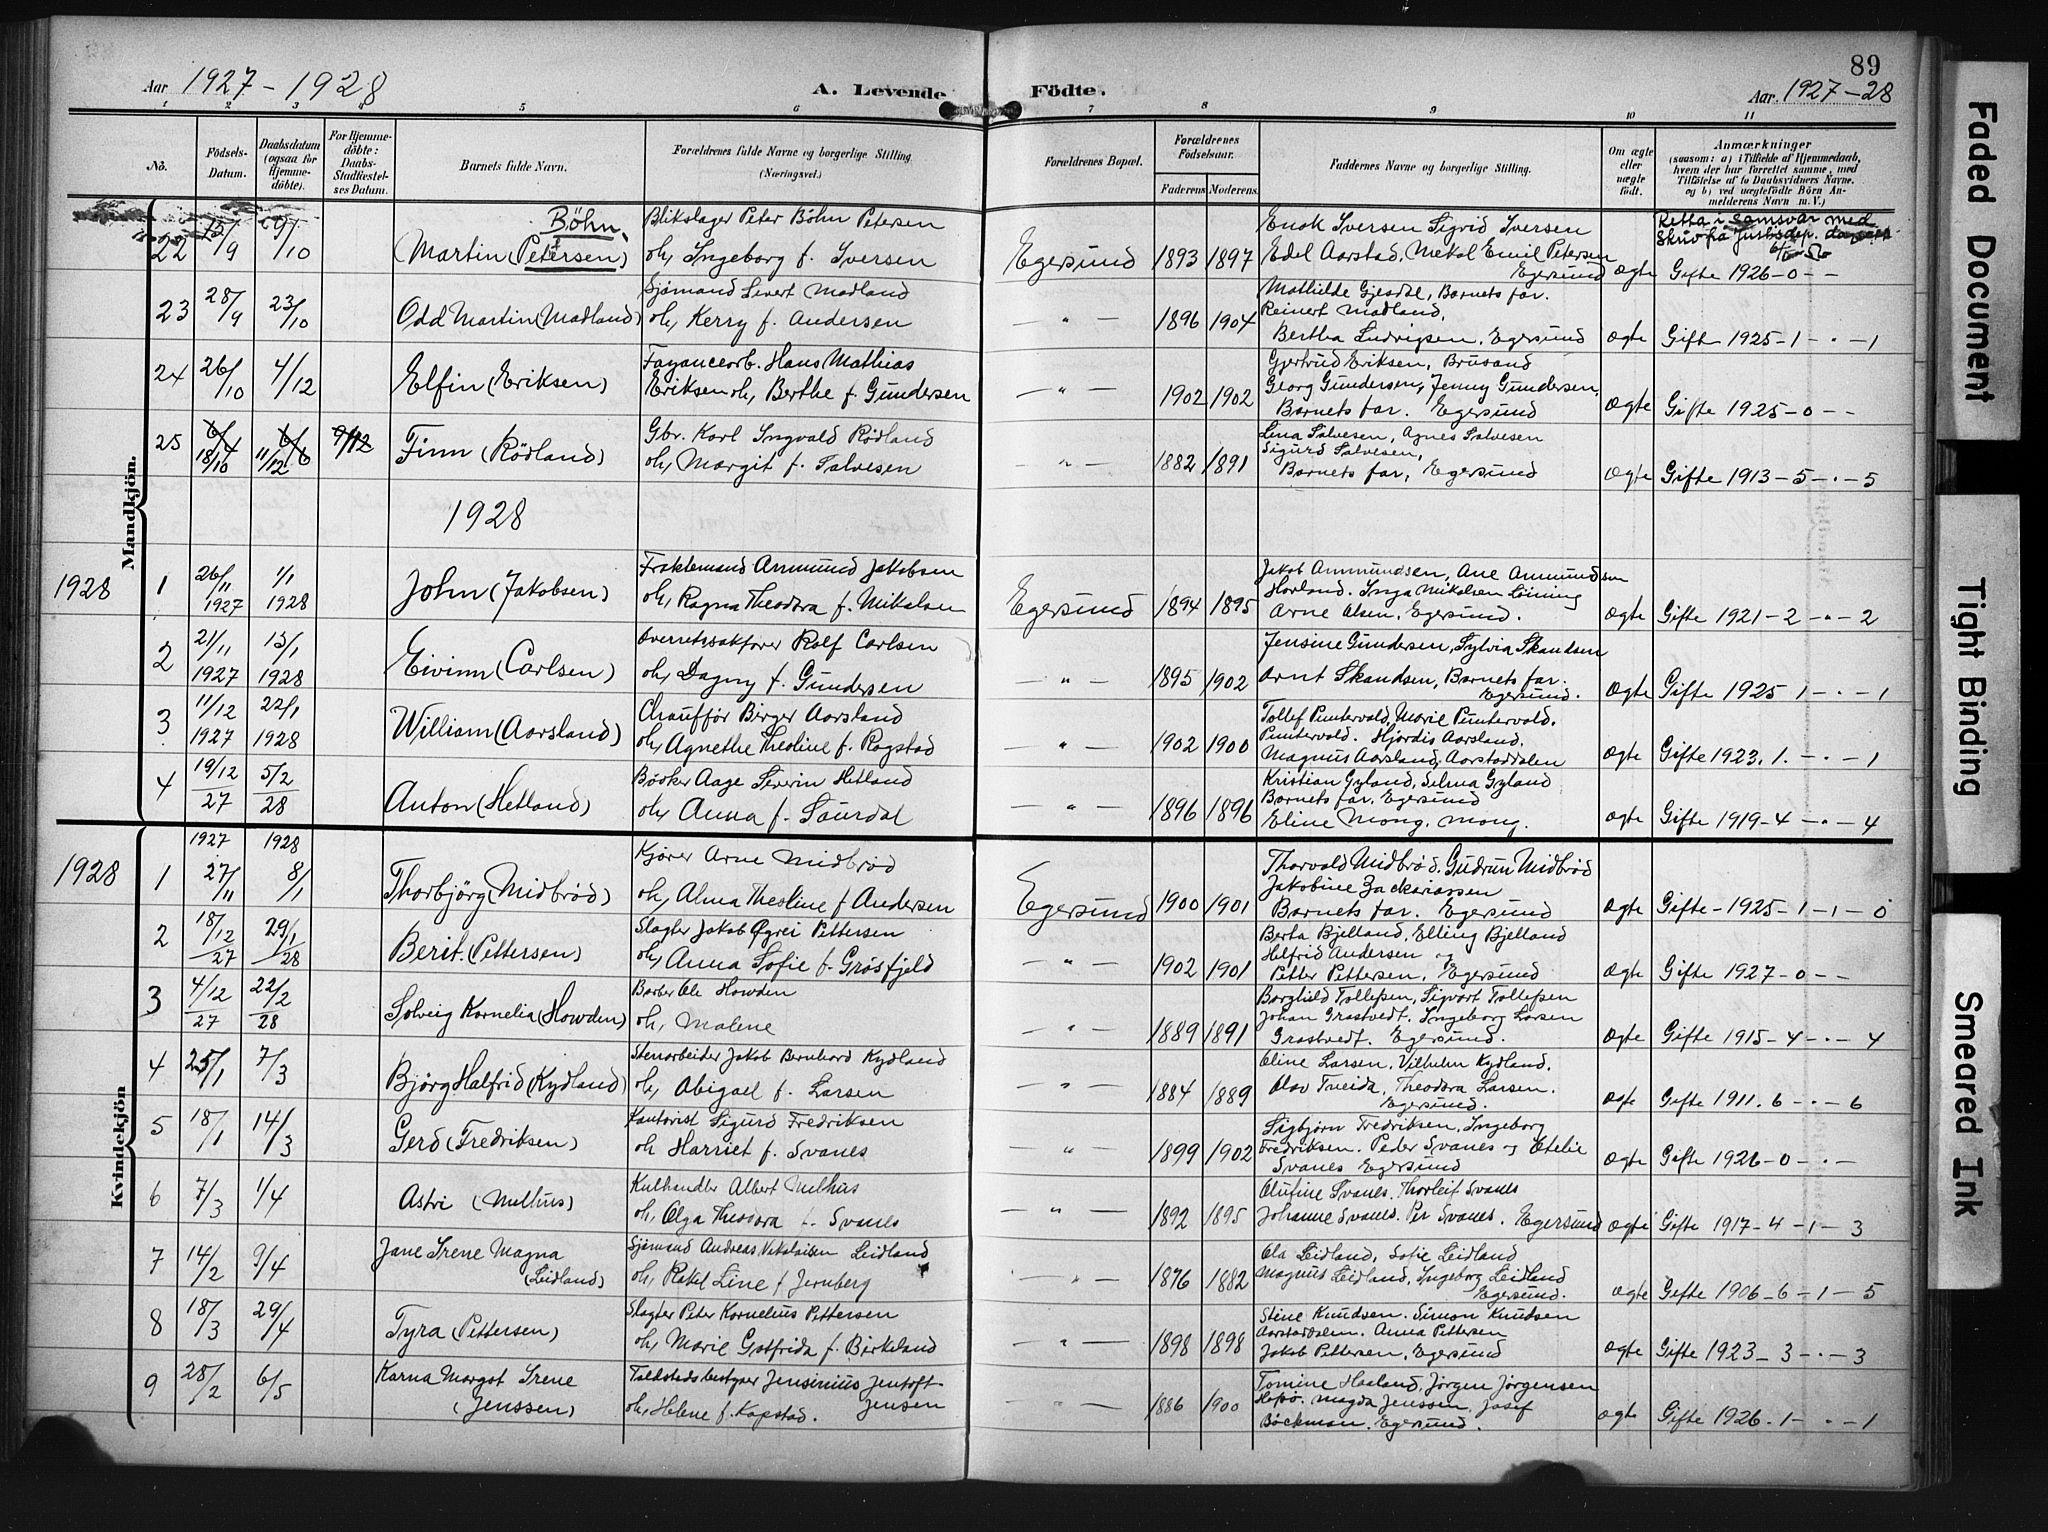 89
Aar. 1927 - 1928 A. Levende Födte. Aar. 1927-28
1 2 3 4 5 6 7 8 9 10 11
No.
Födsels-Datum.
Daabsdatum (ogsaa for Hjemmedöbte).
For Hjemmedöbte: Daabs-Stadfæstelses Datum.
Barnets fulde Navn.
Forældrenes fulde Navne og borgerlige Stilling (Næringsvei.)
Forældrenes Bopæl.
Forældrenes Födselsaar.
Faderens Moderens
Faddernes Navne og borgerlige Stilling.
Om ægte eller uægte födt.
Anmærkninger
(saasom: a) i Tilfælde af Hjemmedaab, hvem der har forrettet samme, med Tilföielse af to Daabsvidners Navne, og b) ved uægtefödte Börn Anmelderens Navn m. V.)
Mandkjön.
22 15/9 9/10 Martin (Petersen) Böhn
Blikslager Peter Böhn Petersen
oh, Ingeborg f. Iversen
Egersund 1893 1897
Enok Iversen Sigrid Iversen
Edel Aarstad, Mekal Emil Petersen
Egersund ægte Gifte 1926-0- -
23 28/9 23/10 Odd Martin (Madland)
Sjömand Sivert Madland
oh, Kerry f. Andersen
— " — 1896 1904
Mathilde Gjesdal, Barnets far.
Reinert Madland,
Bertha Ludvigsen, Egersund ægte Gifte 1925-1- . -1
24 26/10 4/12 Elfin (Eriksen)
Fayancearb. Hans Mathias
Eriksen oh, Berthe f. Gundersen
— " — 1902 1902
Gjertrud Eriksen, Brusand
Georg Gundersen, Jenny Gundersen,
Barnets far. Egersund ægte Gifte 1925-0- -
25 18/10 11/12 9/12 Finn (Rödland)
Gbr. Karl Ingvald Rödland
oh, Margit f. Salvesen
— " — 1882 1891
Lina Salvesen, Agnes Salvesen
Sigurd Salvesen,
Barnets far, Egersund ægte Gifte 1913-5- . -5
1928
1928
1 26/11 1927 1/1 1928 John (Jakobsen)
Fraktemand Ammund Jakobsen
oh, Ragna Theodora f. Mikalsen
Egersund 1894 1895
Jakob Ammundsen, Ane Ammundsen
Havland. Inga Mikelsen Löining
Arne Olsen, Egersund. ægte Gifte 1921-2- " -2
2 21/11 1927 15/1 1928 Eivinn (Carlsen)
Overretssakfører Rolf Carlsen
oh, Dagny f. Gundersen
— " — 1895 1902
Jensine Gundersen, Sylvia Skandsen
Arnt Skandsen, Barnets far.
Egersund. ægte Gifte 1925-1- . -1
3 11/12 1927 22/1 1928 William (Aarsland)
Chaufför Birger Aarsland
oh, Agnethe Theoline f. Rogstad
— " — 1902 1900
Tollef Puntervold, Marie Puntervold.
Puntervold. Hjördis Aarsland.
Magnus Aarsland, Aarstaddalen ægte Gifte 1923. 1. - . -1
4 19/12 27 5/2 28 Anton (Hetland)
Bödker Aage Severin Hetland
oh, Anna f. Saurdal
— " — 1896 1896
Kristian Gyland, Selma Gyland
Barnets far, Egersund
Eline Mong, Mong. ægte Gifte 1919-4- . -4
Kvindekjön
1927 1928
1928
1 27/11 8/1 Thorbjörg (Midbröd)
Kjörer Arne Midbröd
oh, Alma Theoline f Andersen
Egersund 1900 1901
Thorvald Midbröd. Gudrun Midbröd
Jakobine Zackariassen
Barnets far. Egersund ægte Gifte-1925-1-1-0
2 18/12 27 29/1 28 Berit. (Pettersen)
Slagter Jakob Øgrei Pettersen
oh, Anna Sofie f. Grösfjeld
— " — 1902 1901
Berta Bjelland, Elling Bjelland
Helfrid Andersen og
Petter Pettersen, Egersund ægte Gifte 1927-0- -
3 4/12 27 22/2 28 Solveig Kornelia (Howden)
Barber Ole Howden
oh, Malene
— " — 1889 1891
Borghild Tollefsen, Sigvart Tollefsen
Johan Grastvedt. Ingeborg Larsen
Grastvedt. Egersund. ægte Gifte 1915-4- . -4
4 25/1 7/3 Björg Halfrid (Kydland)
Stenarbeider Jakob Bernhard Kydland
oh, Abigael f. Larsen
— " — 1884 1889
Oline Larsen, Vilhelm Kydland.
Olav Tveida, Theodora Larsen.
Egersund. ægte Gifte 1911. 6 - . -6
5 18/1 14/3 Gerd (Fredriksen)
Kontorist Sigurd Fredriksen
oh Harriet f. Svanes
— " — 1899 1902
Sigbjörn Fredriksen, Ingeborg
Fredriksen. Peder Svanes og Otelie
Svanes Egersund ægte Gifte 1926-0- . -
6 7/3 1/4 Astri (Melhus)
Kulhandler Albert Melhus
oh, Olga Theodora f. Svanes
— " — 1892 1895
Olufine Svanes. Thorleif Svanes
Johanne Svanes. Per Svanes. Egersund ægte Gifte 1917-4-1-3
7 14/2 9/4 Jane Irene Magna
(Leidland)
Sjömand Andreas Nikolaisen Leidland
oh, Rakel Line f Jernberg
— " — 1876 1882
Ola Leidland, Sofie Leidland
Magnus Leidland, Ingeborg Leidland
Egersund. ægte Gifte 1906-6-1-5
8 18/3 29/4 Tyra (Pettersen)
Slagter Peter Kornelius Pettersen
oh, Marie Gotfrida f. Birkeland
— " — 1898 1898
Stine Knudsen. Simon Knudsen
Aarstaddalen. Anna Pettersen
Jakob Pettersen, Egersund ægte Gifte 1923-3- . -3
9 28/2 6/5 Karna Margot Irene
(Jenssen)
Toldstedsbestyrer Jensinius Jentoft
Jensen
oh, Helene f. Kapstad.
— " — 1886 1900
Tomine Haaland, Jörgen Jörgensen
Magda Jenssen, Josef
Böckman. Egersund. ægte Gifte 1926. 1- . -1
Faded Document
Tight Binding
Smeared Ink